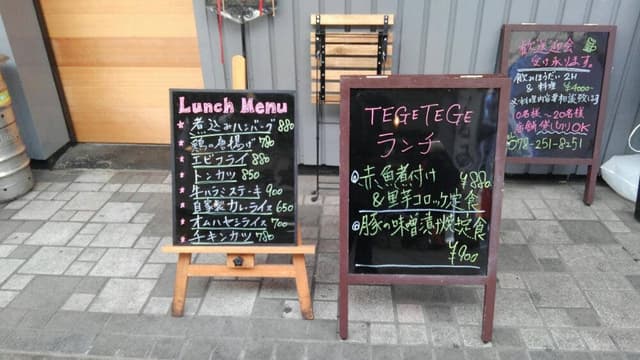 Lunch Menu
煮込みハンバーグ 880
鶏の唐揚げ 780
エビフライ 880
トンカツ 850
牛ハラミステーキ 900
自家製カレーライス 650
オムハヤシライス 700
チキンカツ 780
TEGETEGE
ランチ
赤魚煮付け ¥880
&里芋コロッケ定食
豚の味噌漬け焼定食
¥900
歓送迎会
受け承ります。
飲みほうだい2H
&料理 ¥4000-
※料理内容要相談
0名様〜20名様
店舗貸し切りOK
578-251-8251